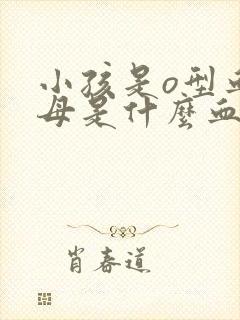 小孩是o型血
母是什麼血
肖春道